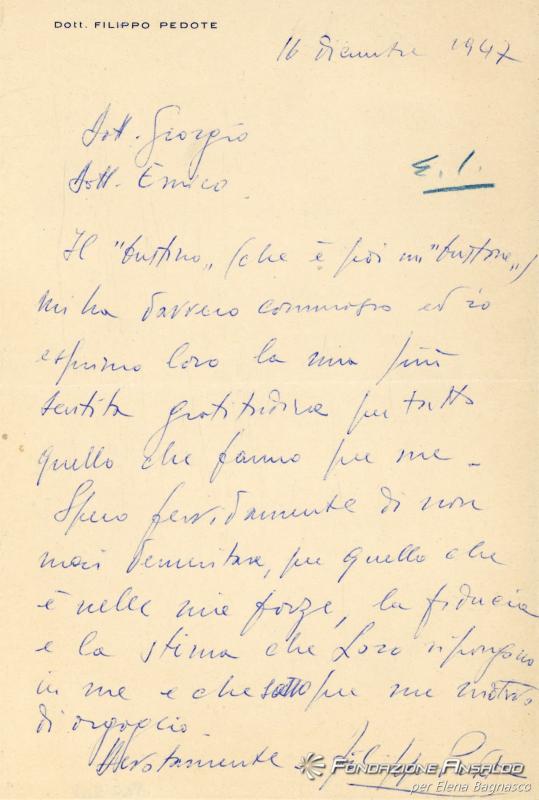 Dott. FILIPPO PEDOTE
16 dicembre 1947
Dott. Giorgio
Dott. Enrico
E. I.
Il "bustino„ (che è poi un "bustone„)
mi ha davvero commosso ed io
esprimo loro la mia più
sentita gratitudine per tutto
quello che fanno per me -
Spero fervidamente di non
mai demeritare, per quello che
è nelle mie forze, la fiducia
e la stima che Loro ripongono
in me e che sono per me motivo
di orgoglio.
Devotamente Filippo Pedote
FONDAZIONE ANSALDO
per Elena Bagnasco